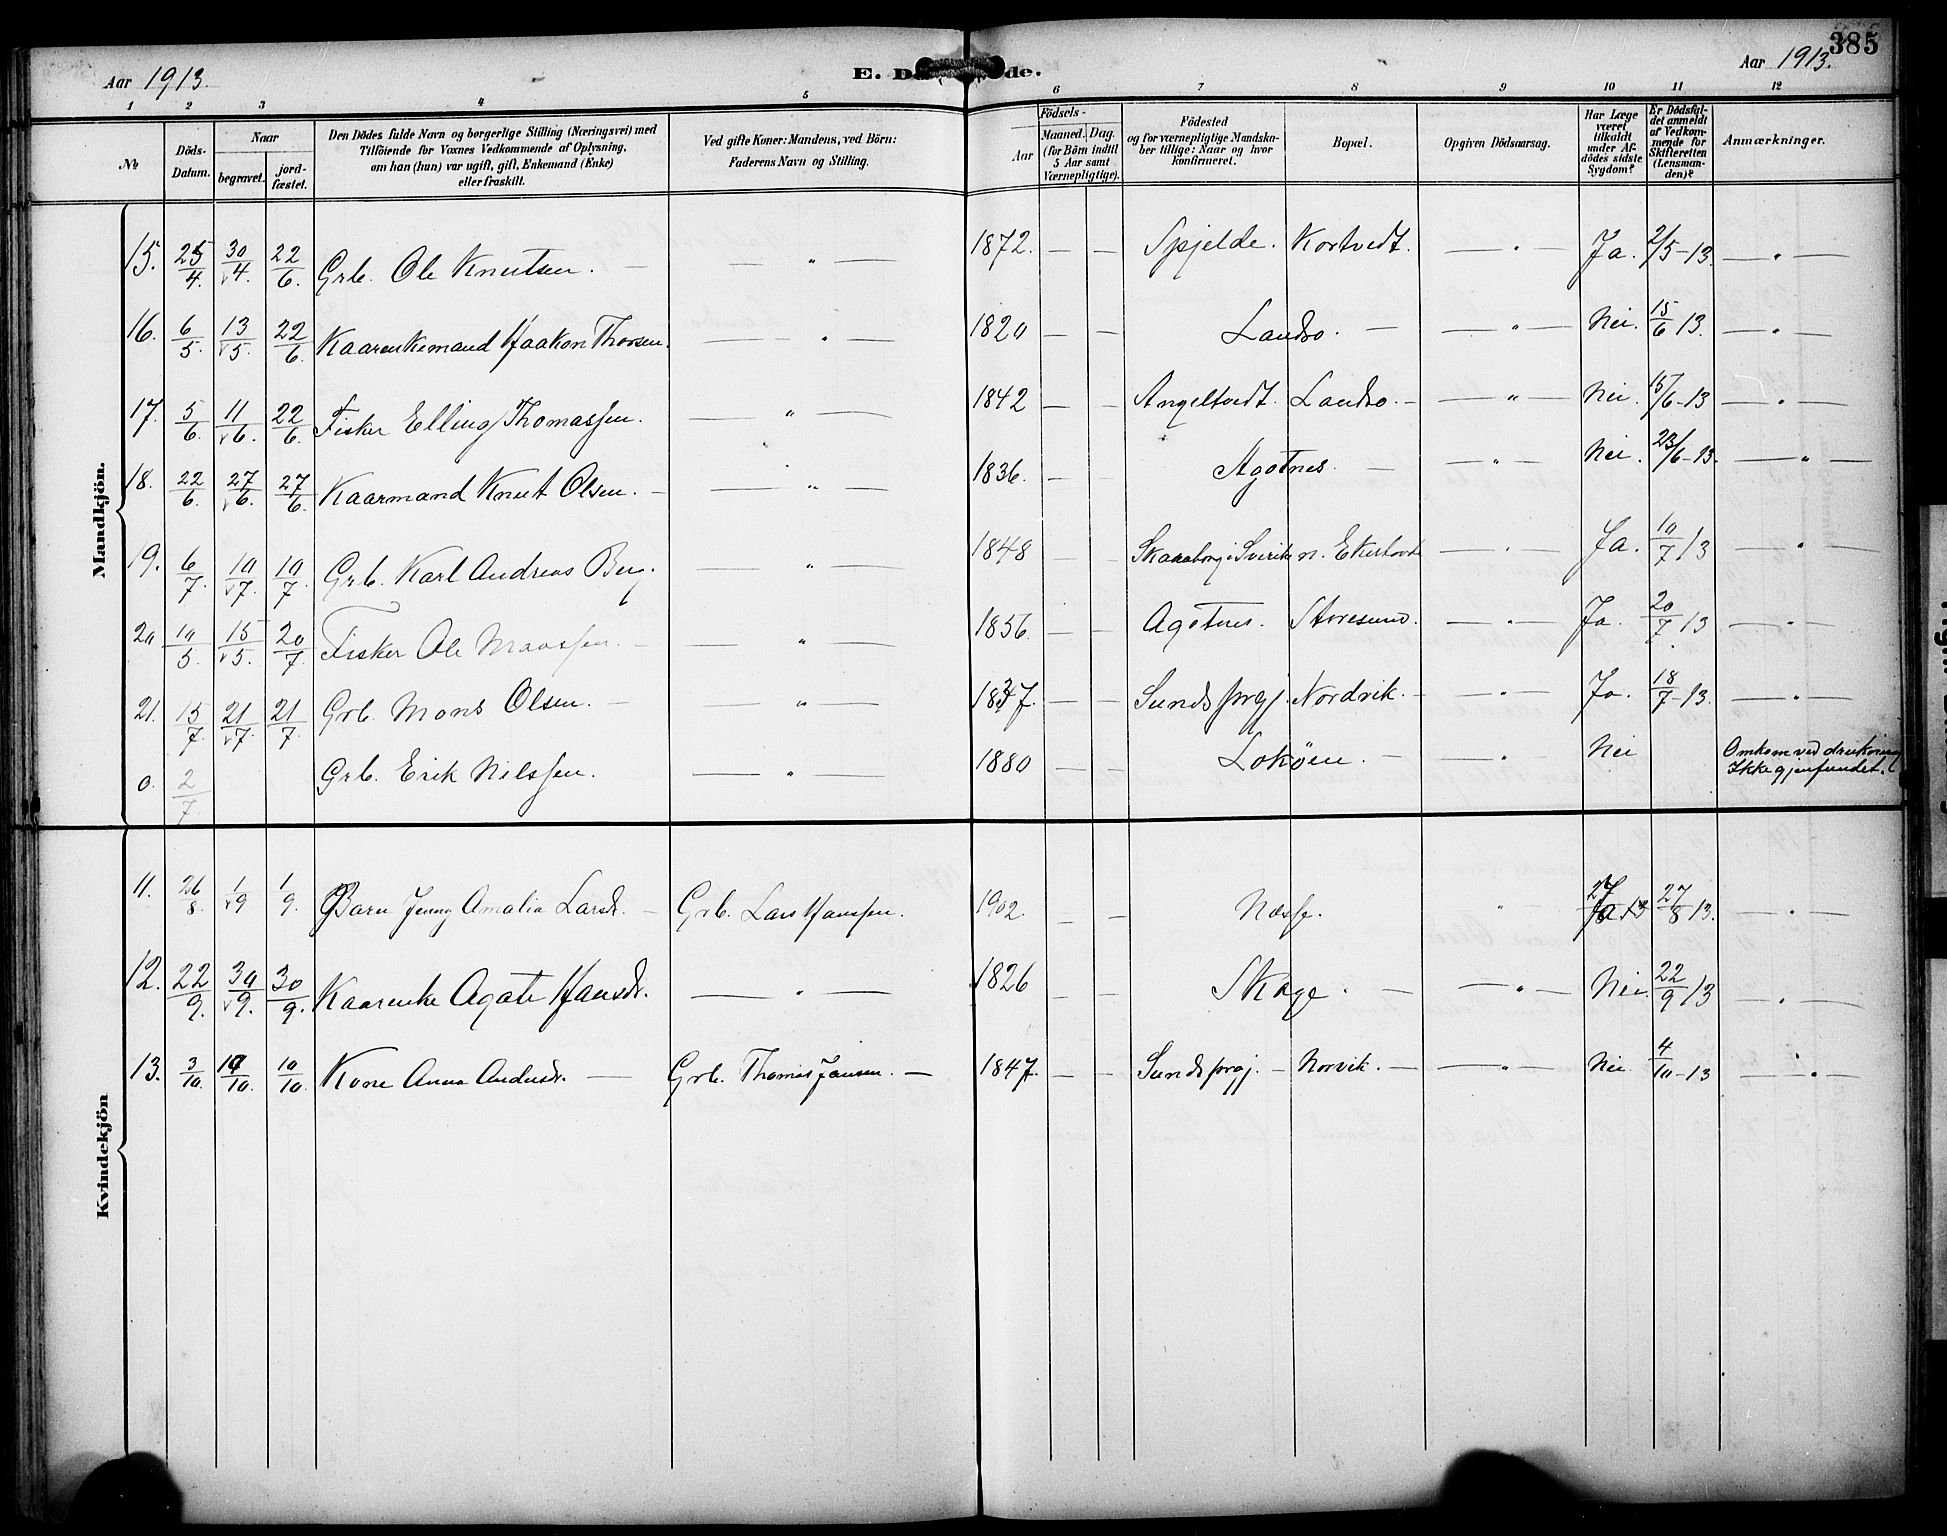 385
Aar 1913. E. D de. Aar 1913.
1 2 3 4 5 6 7 8 9 10 11 12
№ Döds-Datum. Naar begravet. jord-fæstet. Den Dödes fulde Navn og borgerlige Stilling (Næringsvei) med Tilföiende for Voxnes Vedkommende af Oplysning, om han (hun) var ugift, gift, Enkemand (Enke) eller fraskilt. Ved gifte Koner: Mandens, ved Börn: Faderens Navn og Stilling. Födsels- Aar Maaned. Dag. (for Börn indtil 5 Aar samt Værnepligtige). Födested og for værnepligtige Mandskaber tillige: Naar og hvor konfirmeret. Bopæl. Opgiven Dödsaarsag. Har Læge været tilkaldt under Afdödes sidste Sygdom? Er Dödsfaldet anmeldt af Vedkommende for Skifteretten (Lensmanden)? Anmærkninger.
Mandkjön.
15. 25/4. 30/4. 22/6. Grb. Ole Knutsen. — — " — 1872. — — Spjelde. Kortvedt. — " — Ja. 2/5-13. — " —
16. 6/5. 13/5. 22/6. Kaarenkemand Haakon Thorsen. — " — 1820 — — Landro. — — " — Nei. 15/6 13. — " —
17. 5/6. 11/6. 22/6. Fisker Elling Thomassen. — " — 1842 — — Angeltvedt. Landro. — — " — Nei. 15/6-13 — " —
18. 22/6. 27/6. 27/6. Kaarmand Knut Olsen. — — " — 1836. — Agotnes. — — " — Nei. 23/6-13. — " —
19. 6/7. 10/7. 10/7. Grb. Karl Andreas Berg. — " — 1848 — — Skaraborg i Sverike n. Ekerhovd — " — Ja. 10/7 13 — " —
20 10/5. 15/5. 20/7. Fisker Ole Monssen. — — " — 1856. — — Agotnes. Storesund. — " — Ja. 20/7 13 — " —
21. 15/7. 21/7. 21/7. Grb. Mons Olsen. — — " — 1837. — — Sunds prgj. Nordvik. — — " — Ja. 18/7-13. — " —
0. 2/7 Grb. Erik Nilssen. — " — 1880 — — Lokøen. — — " — Nei Omkom ved drukning
Ikke gjenfundet.
Kvindekjön
11. 26/8. 1/9 1/9. Barn Jenny Amalia Larsdr. — Grb. Lars Hanssen. 1902. — — Næsse. " Ja 27/8 13. — " —
12. 22/9. 30/9. 30/9. Kaarenke Agate Hansdr. — " — 1826 — — Skoge. — — " — Nei. 22/9 13 — " —
13. 3/10. 10/10. 10/10. Kone Anna Andersdr. — Grb. Thomas Jansen. — 1847. — — Sunds prgj. — Norvik. — — " — Nei 4/10-13 — " —